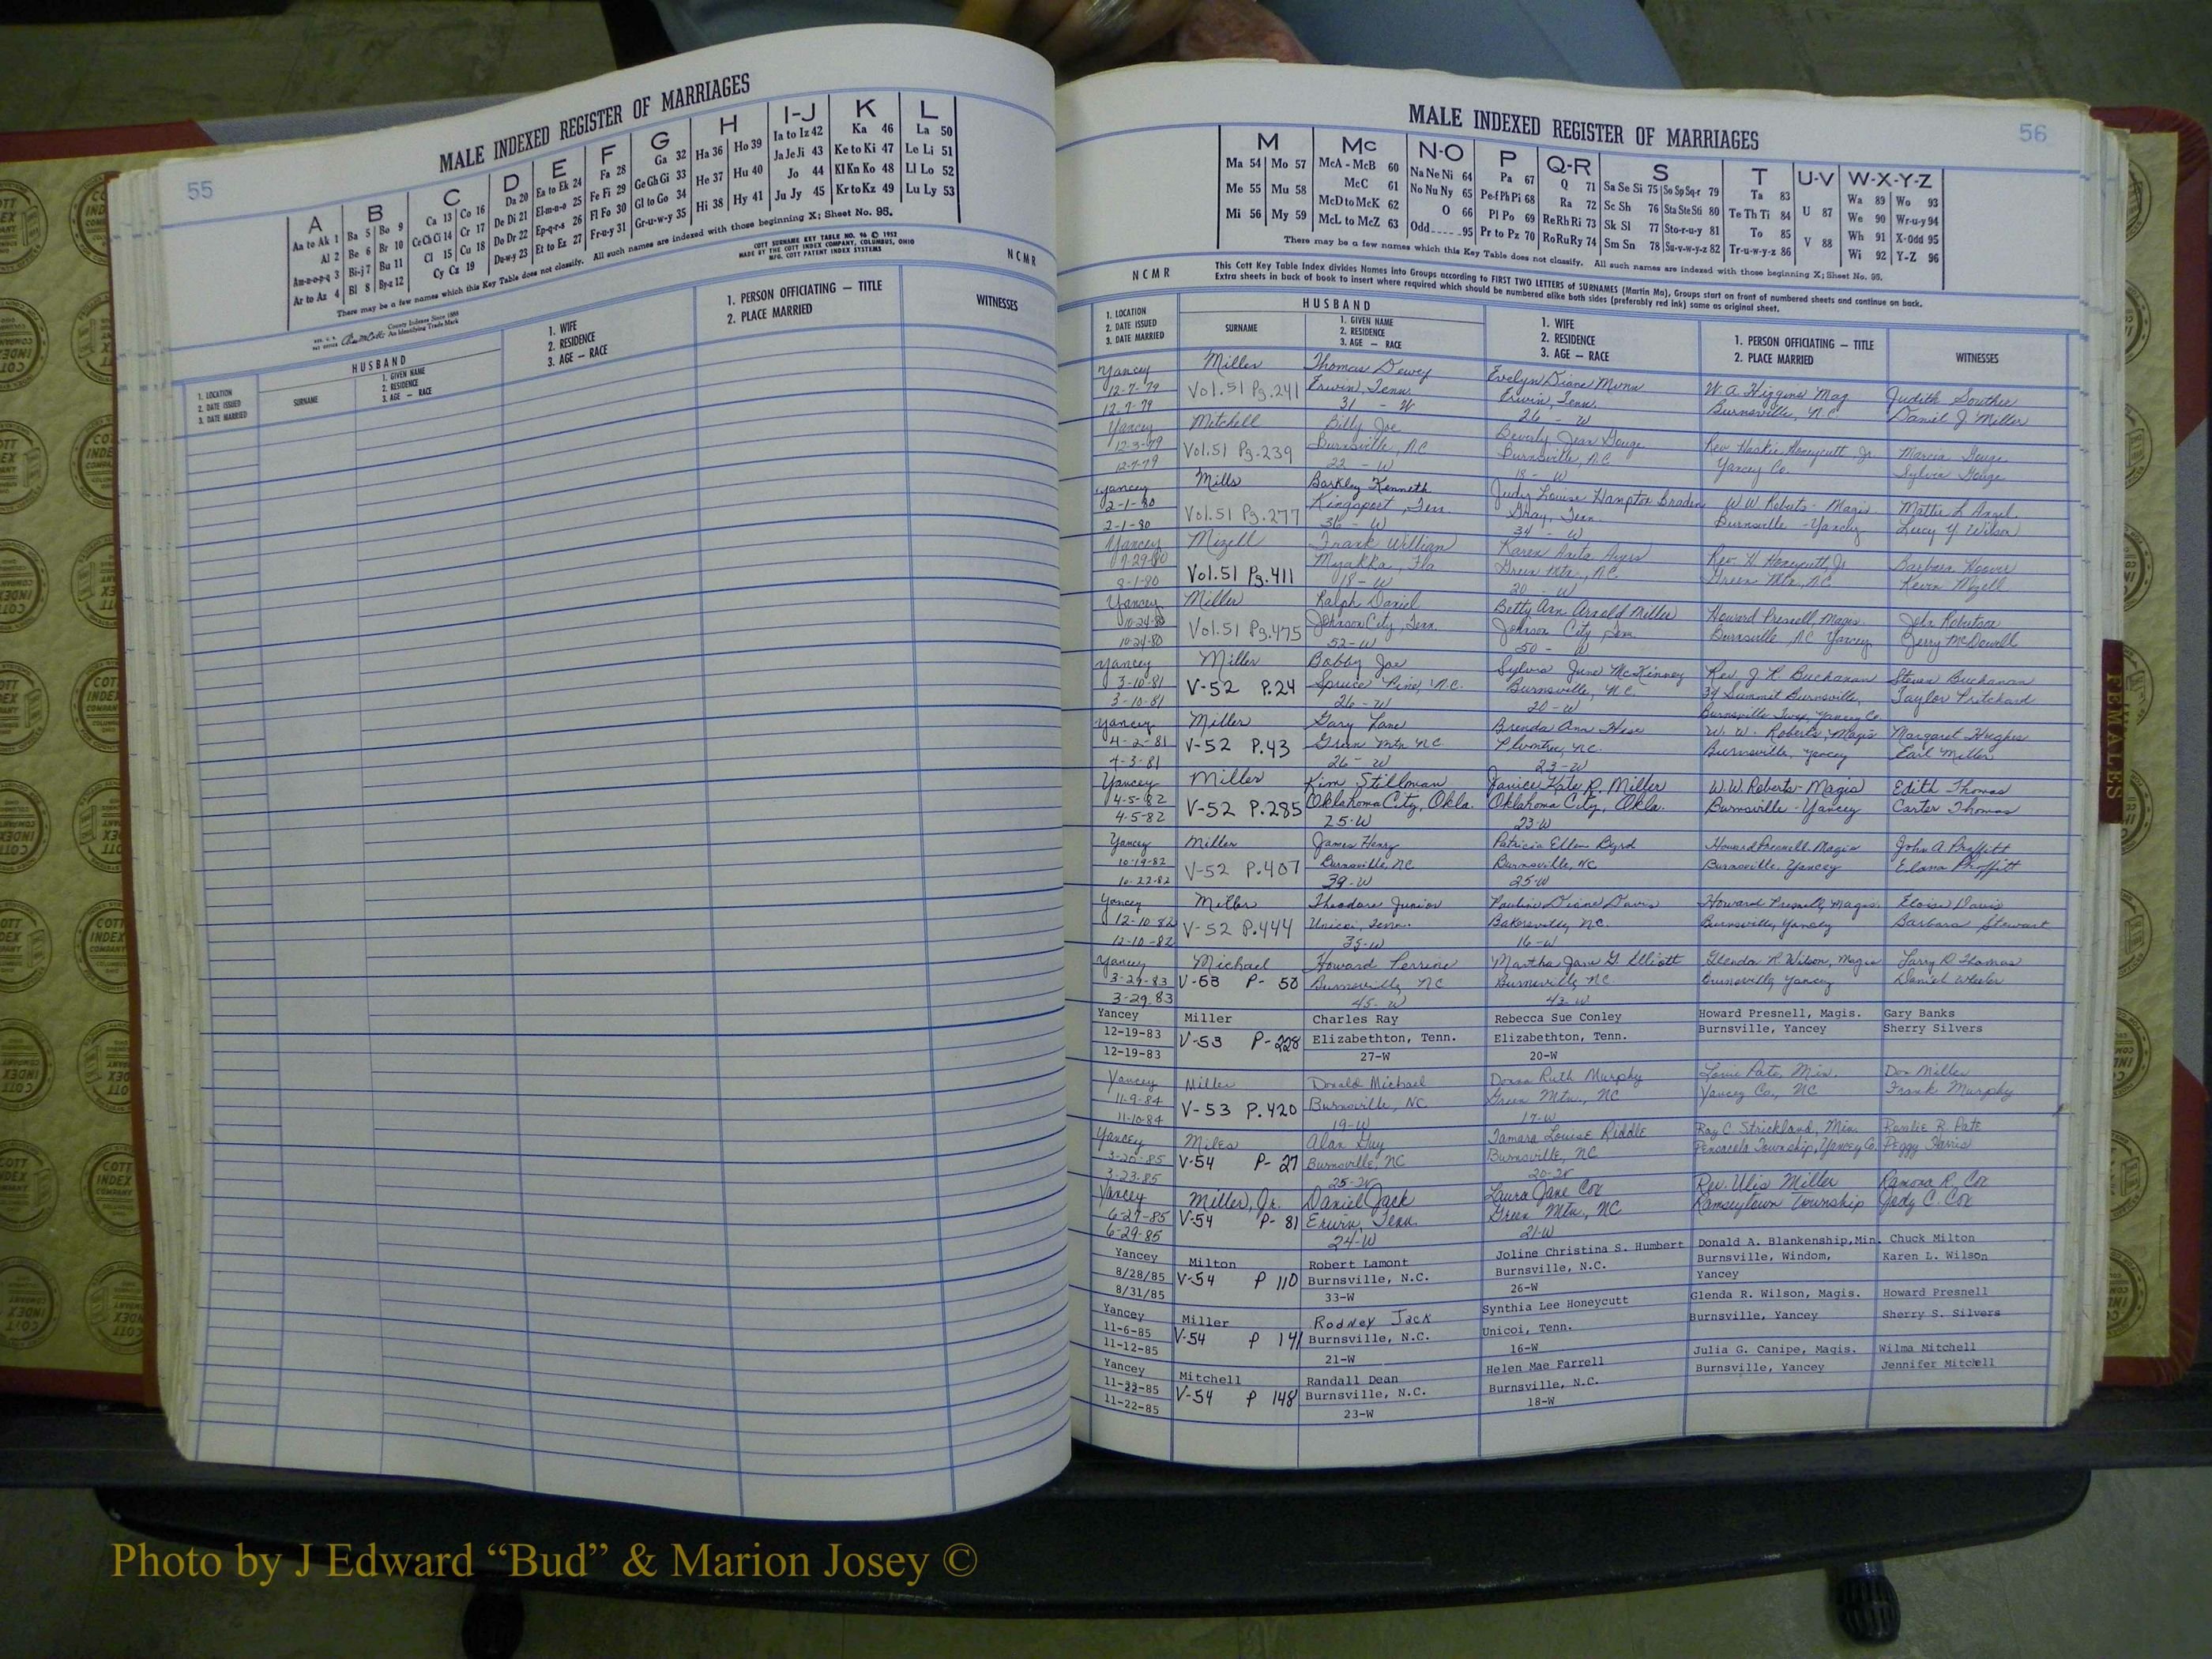 55
MALE INDEXED REGISTER OF MARRIAGES
A B C D E F G H I-J K L
Aa to Ak 1 Ba 5 Bo 9 Ca 13 Co 16 Da 20 Ea to Ek 24 Fa 28 Ga 32 Ha 36 Ho 39 Ia to Iz 42 Ka 46 La 50
Al 2 Be 6 Br 10 Ce Ch Ci 14 Cr 17 De Di 21 El-m-n-o 25 Fe Fi 29 Ge Gh Gi 33 He 37 Hu 40 Ja Je Ji 43 Ke to Ki 47 Le Li 51
Am-n-o-p-q 3 Bi-j 7 Bu 11 Cl 15 Cu 18 Do Dr 22 Ep-q-r-s 26 Fl Fo 30 Gl to Go 34 Hi 38 Hy 41 Jo 44 Kl Kn Ko 48 Ll Lo 52
Ar to Az 4 Bl 8 By-z 12 Cy Cz 19 Du-w-y 23 Et to Ez 27 Fr-u-y 31 Gr-u-w-y 35 Ju Jy 45 Kr to Kz 49 Lu Ly 53
There may be a few names which this Key Table does not classify. All such names are indexed with those beginning X; Sheet No. 95.
COTT SURNAME KEY TABLE NO. 96 © 1952
MADE BY THE COTT INDEX COMPANY, COLUMBUS, OHIO
MFG. COTT PATENT INDEX SYSTEMS
County Indexes Since 1888
An Identifying Trade Mark
NCMR
1. LOCATION
2. DATE ISSUED
3. DATE MARRIED
HUSBAND
SURNAME
1. GIVEN NAME
2. RESIDENCE
3. AGE — RACE
1. WIFE
2. RESIDENCE
3. AGE — RACE
1. PERSON OFFICIATING — TITLE
2. PLACE MARRIED
WITNESSES
56
MALE INDEXED REGISTER OF MARRIAGES
M Mc N-O P Q-R S T U-V W-X-Y-Z
Ma 54 Mo 57 McA - McB 60 Na Ne Ni 64 Pa 67 Q 71 Sa Se Si 75 So Sp Sq-r 79 Ta 83 Wa 89 Wo 93
Me 55 Mu 58 McC 61 No Nu Ny 65 Pe-f Ph Pi 68 Ra 72 Sc Sh 76 Sta Ste Sti 80 Te Th Ti 84 U 87 We 90 Wr-u-y 94
Mi 56 My 59 McD to McK 62 O 66 Pl Po 69 Re Rh Ri 73 Sk Sl 77 Sto-r-u-y 81 To 85 V 88 Wh 91 X-Odd 95
McL to McZ 63 Odd 95 Pr to Pz 70 Ro Ru Ry 74 Sm Sn 78 Su-v-w-y-z 82 Tr-u-w-y-z 86 Wi 92 Y-Z 96
There may be a few names which this Key Table does not classify. All such names are indexed with those beginning X; Sheet No. 95.
This Cott Key Table Index divides Names into Groups according to FIRST TWO LETTERS of SURNAMES (Martin Ma), Groups start on front of numbered sheets and continue on back.
Extra sheets in back of book to insert where required which should be numbered alike both sides (preferably red ink) same as original sheet.
NCMR
1. LOCATION
2. DATE ISSUED
3. DATE MARRIED
HUSBAND
SURNAME
1. GIVEN NAME
2. RESIDENCE
3. AGE — RACE
1. WIFE
2. RESIDENCE
3. AGE — RACE
1. PERSON OFFICIATING — TITLE
2. PLACE MARRIED
WITNESSES
Yancey Miller Thomas Dewey Evelyn Diane Munn W. A. Higgins Mag Judith Souther
12-7-79 Vol. 51 Pg. 241 Erwin, Tenn. Erwin, Tenn. Burnsville, N.C. Daniel J. Miller
12-7-79 31 - W 26 - W
Yancey Mitchell Billy Joe Beverly Jean Gouge Rev. Haskie Honeycutt Jr. Marcia Gouge
12-3-79 Vol. 51 Pg. 239 Burnsville, N.C. Burnsville, N.C. Yancey Co. Sylvia Gouge
12-7-79 22 - W 18 - W
Yancey Mills Barkley Kenneth Judy Louise Hampton Braden W. W. Roberts - Magis. Mattie L Angel
2-1-80 Vol. 51 Pg. 277 Kingsport, Tenn. Gray, Tenn. Burnsville - Yancey Lucy Y. Wilson
2-1-80 36 - W 34 - W
Yancey Mizell Frank William Karen Anita Ayers Rev. H. Honeycutt Jr. Barbara Hoover
7-29-80 Vol. 51 Pg. 411 Myakka, Fla Green Mtn., N.C. Green Mtn, N.C. Kevin Mizell
8-1-80 18 - W 20 - W
Yancey Miller Ralph Daniel Betty Ann Arnold Miller Howard Presnell, Magis. John Robertson
10-24-80 Vol. 51 Pg. 475 Johnson City, Tenn. Johnson City, Tenn. Burnsville, N.C. Yancey Jerry McDowell
10-24-80 52 - W 50 - W
Yancey Miller Bobby Joe Sylvia June McKinney Rev. J. R. Buchanan Steven Buchanan
3-10-81 V-52 P. 24 Spruce Pine, N.C. Burnsville, N.C. 34 Summit Burnsville, Taylor Pritchard
3-10-81 26 - W 20 - W Burnsville Twp, Yancey Co.
Yancey Miller Gary Lane Brenda Ann Hise W. W. Roberts Magis Margaret Hughes
4-2-81 V-52 P. 43 Green Mtn NC Plumtree, N.C. Burnsville, Yancey Earl Miller
4-3-81 26 - W 23 - W
Yancey Miller Kim Stillman Janice Kate R. Miller W. W. Roberts - Magis Edith Thomas
4-5-82 V-52 P. 285 Oklahoma City, Okla. Oklahoma City, Okla. Burnsville - Yancey Carter Thomas
4-5-82 25-W 23-W
Yancey Miller James Henry Patricia Ellen Byrd Howard Presnell, Magis John A Proffitt
10-19-82 V-52 P. 407 Burnsville, NC Burnsville, NC Burnsville, Yancey Elana Proffitt
10-22-82 39-W 25-W
Yancey Miller Theodore Junior Pauline Diane Davis Howard Presnell, Magis. Eloise Davis
12-10-82 V-52 P. 444 Unicoi, Tenn. Bakersville, N.C. Burnsville, Yancey Barbara Stewart
12-10-82 35-W 16-W
Yancey Michael Howard Perrine Martha Jane G. Elliott Glenda R. Wilson, Magis Larry D. Thomas
3-29-83 V-53 P- 50 Burnsville, NC Burnsville, NC. Burnsville, Yancey Daniel Wheeler
3-29-83 45-W 42-W
Yancey Miller Charles Ray Rebecca Sue Conley Howard Presnell, Magis. Gary Banks
12-19-83 V-53 P-228 Elizabethton, Tenn. Elizabethton, Tenn. Burnsville, Yancey Sherry Silvers
12-19-83 27-W 20-W
Yancey Miller Donald Michael Donna Ruth Murphy Louie Pate, Min. Don Miller
11-9-84 V-53 P. 420 Burnsville, NC Green Mtn., NC Yancey Co., NC Frank Murphy
11-10-84 19-W 17-W
Yancey Miles Alan Guy Tamara Louise Riddle Roy C. Strickland, Min. B. Pate
3-20-85 V-54 P- 27 Burnsville, NC Burnsville, NC Pensacola Township, Yancey Co. Peggy Harris
3-23-85 25-W 20-W
Yancey Miller, Jr. Daniel Jack Laura Jane Cox Rev. Ulis Miller Ramona R. Cox
6-27-85 V-54 P- 81 Erwin, Tenn. Green Mtn, NC Ramseytown Township Jody C. Cox
6-29-85 24-W 21-W
Yancey Milton Robert Lamont Joline Christina S. Humbert Donald A. Blankenship, Min. Chuck Milton
8/28/85 V-54 P 110 Burnsville, N.C. Burnsville, N.C. Burnsville, Windom, Karen L. Wilson
8/31/85 33-W 26-W Yancey
Yancey Miller Rodney Jack Synthia Lee Honeycutt Glenda R. Wilson, Magis. Howard Presnell
11-6-85 V-54 P 141 Burnsville, N.C. Unicoi, Tenn. Burnsville, Yancey Sherry S. Silvers
11-12-85 21-W 16-W
Yancey Mitchell Randall Dean Helen Mae Farrell Julia G. Canipe, Magis. Wilma Mitchell
11-22-85 V-54 P 148 Burnsville, N.C. Burnsville, N.C. Burnsville, Yancey Jennifer Mitchell
11-22-85 23-W 18-W
FEMALES
Photo by J Edward “Bud” & Marion Josey ©